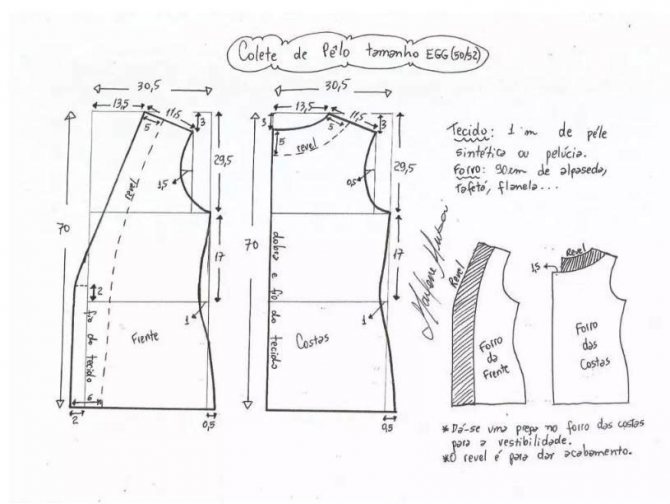 Colete de Pêlo tamanho EGG (50/52)
30,5
30,5
13,5
11,5
13,5
11,5
3
5
3
3
5
5
revel
revel
29,5
29,5
1,5
0,5
70
70
17
17
2
1
1
fio do tecido
dobra e fio do tecido
Frente
Costas
6
2
0,5
0,5
Tecido: 1 m de pêle
sintética ou pelúcia.
Forro: 90cm de alpaseda,
tafetá, flanela...
Marlene Mukai
Revel
Revel
1,5
Forro
da
Frente
Forro
das
Costas
*Dá-se uma prega no forro das costas
para a vestibilidade.
*O revel é para dar acabamento.